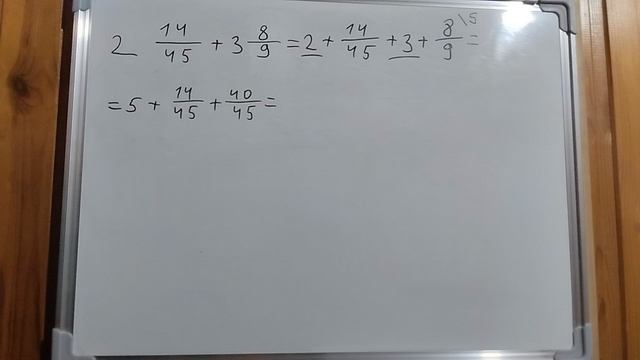 2 14/45 + 3 8/9 = 2 + 14/45 + 3 + 8\5/9 =
= 5 + 14/45 + 40/45 =